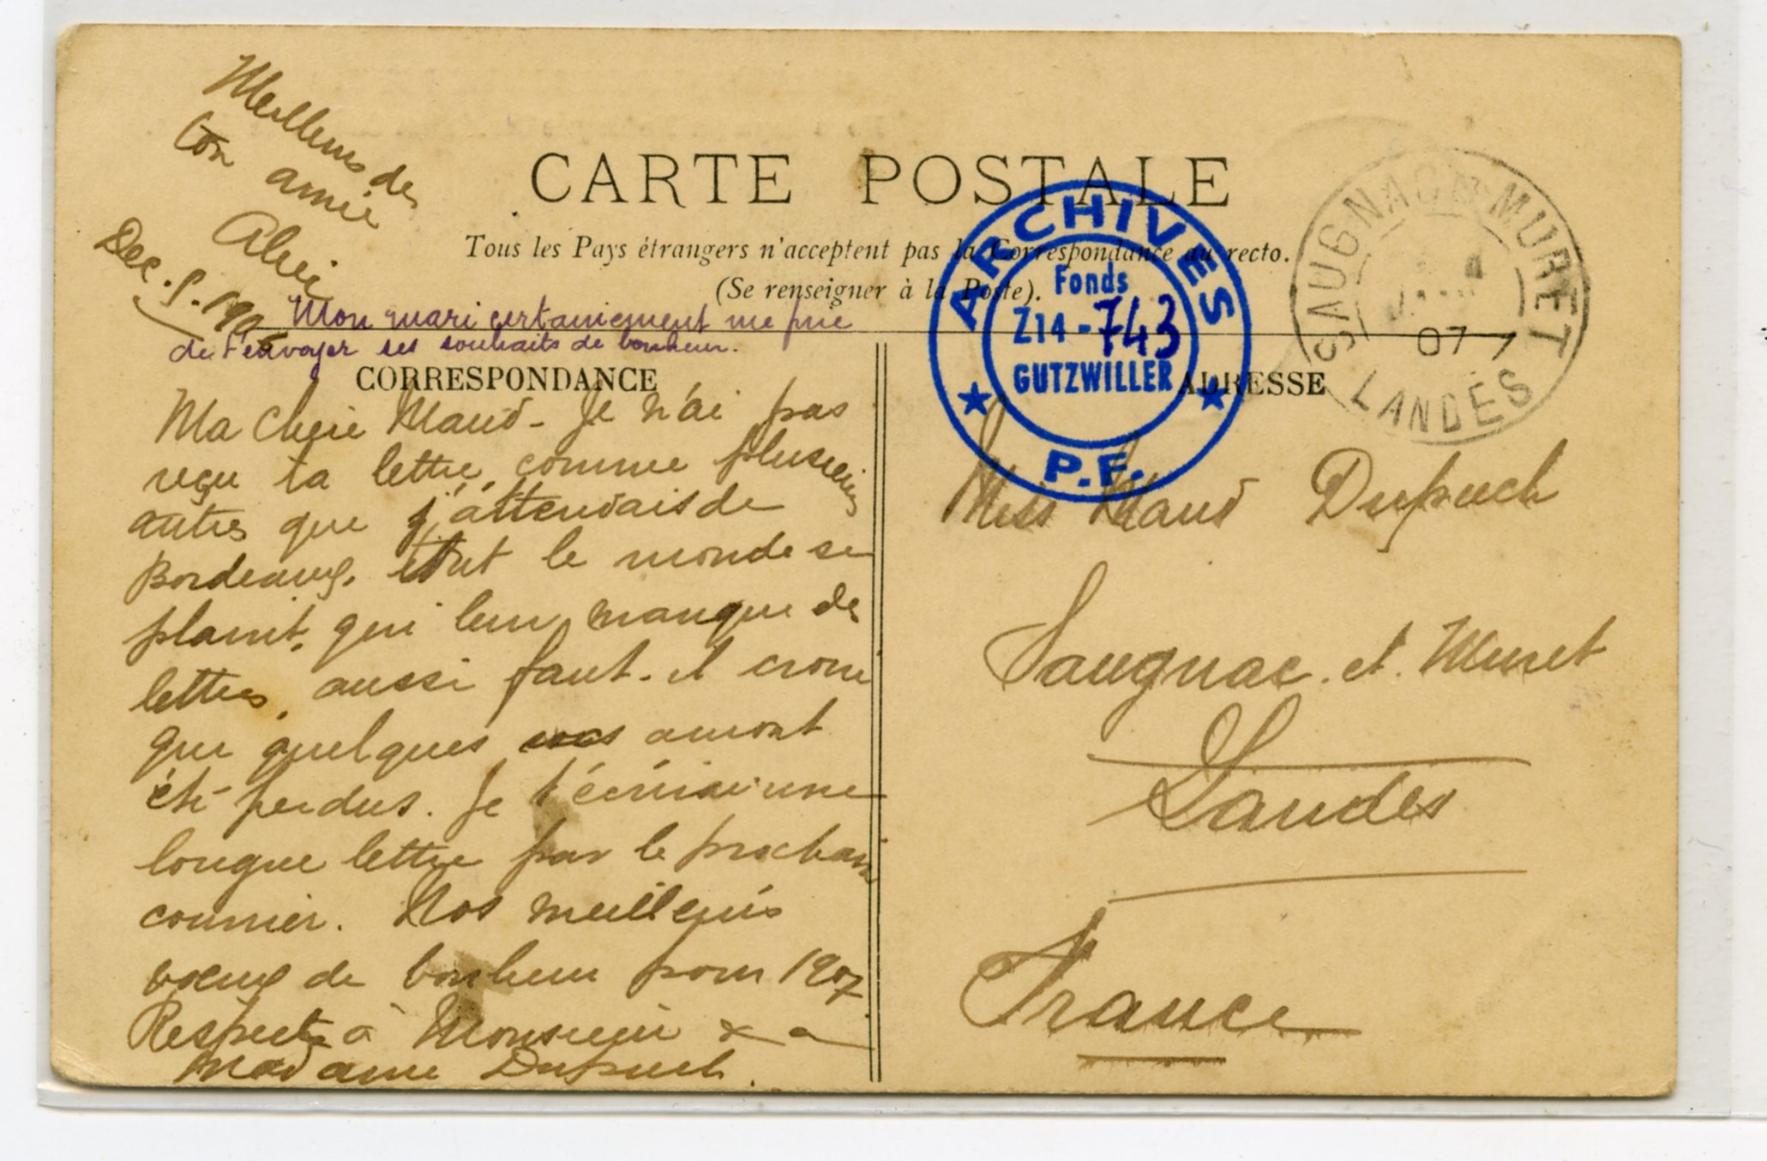 CARTE POSTALE
Tous les Pays étrangers n'acceptent pas la Correspondance au recto.
(Se renseigner à la Poste).
CORRESPONDANCE
Ma Chère Maud - Je n'ai pas
reçu ta lettre, comme plusieurs
autres que j'attendais de
Bordeaux. tout le monde se
plaint, qui leur manque des
lettres, aussi faut-il croire
que quelques unes auront
été perdus. Je t'écrirai une
longue lettre par le prochain
courrier. Nos meilleurs
voeux de bonheur pour 1907
Respects à Monsieur & a
Madame Dupuch.
Meilleurs de
ton amie
Dec. 5. 190
Mon mari certainement me prie
de t'envoyer ses souhaits de bonheur.
ADRESSE
Miss Maud Dupuch
Saugnac et Muret
Landes
France
ARCHIVES
Fonds
Z14-743
GUTZWILLER
P.F.
SAUGNAC ET MURET
07
LANDES